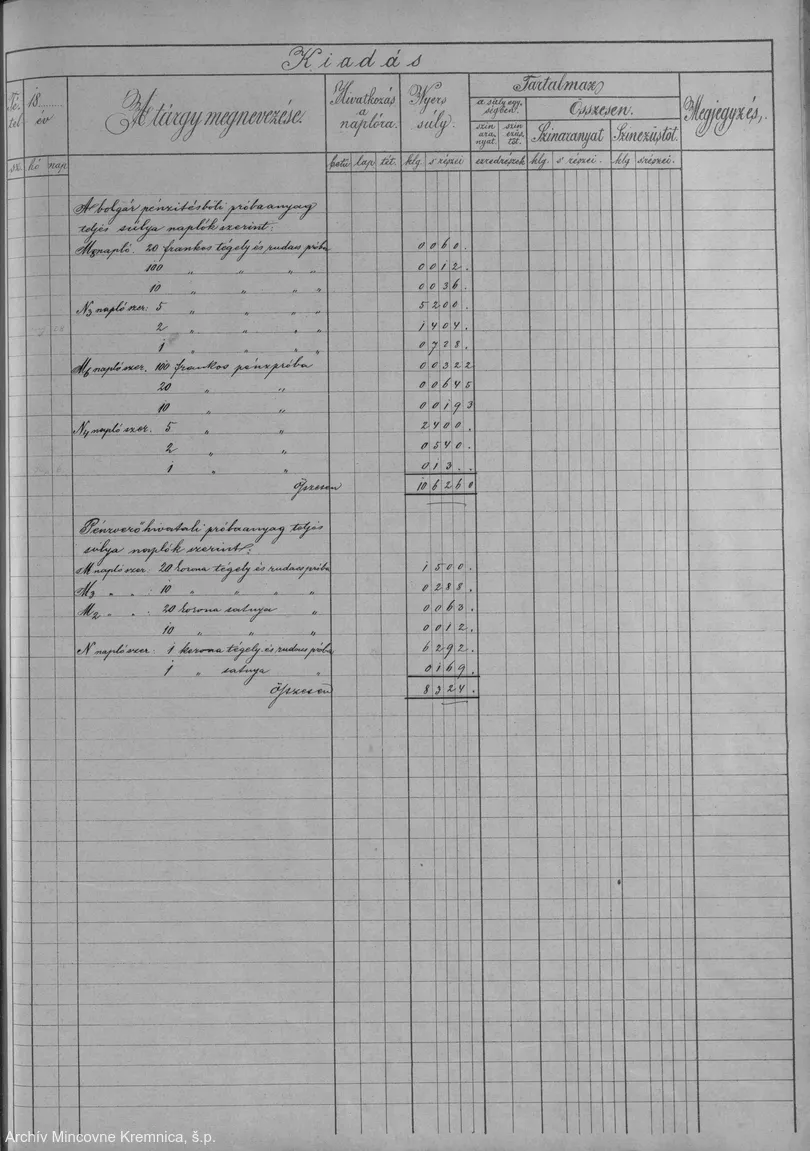 Kiadás
Té-
tel
sz.
18
év
hó nap
A tárgy megnevezése.
Hivatkozás
a
naplóra.
betű lap tét.
Nyers
súly.
klg. s részei
Tartalmaz
a súly egy-
ségben.
szín
ara-
nyat.
szín
ezüs-
töt.
ezredrészek
Összesen.
Színaranyat
klg. s részei.
Színezüstöt.
klg s részei.
Megjegyzés,
A bolgár pénzitésböli próbaanyag
teljes súlya naplók szerint:
napló. 20 frankos tégely és rudacs próba 0 0 6 0 .
100 „ „ „ „ 0 0 1 2 .
10 „ „ „ „ 0 0 3 6 .
N3 napló szer: 5 „ „ „ „ 5 2 0 0 .
2 „ „ „ „ 1 4 0 4 .
1 „ „ „ „ 0 7 2 8 .
napló szer. 100 frankos pénzpróba 0 0 3 2 2
20 „ „ 0 0 6 4 5
10 „ „ 0 0 1 9 3
N4 napló szer: 5 „ „ 2 4 0 0 .
2 „ „ 0 5 4 0 .
1 „ „ 0 1 3 . .
Öszesen 10 6 2 6 0
Pénzverőhivatali próbaanyag teljes
súlya naplók szerint:
M napló szer: 20 korona tégely és rudacs próba 1 5 0 0 .
M3 „ „ 10 „ „ „ „ 0 2 8 8 .
M2 „ „ : 20 korona satnya „ 0 0 6 3 .
10 „ „ „ 0 0 1 2 .
N napló szer: 1 korona tégely és rudacs próba 6 2 9 2 .
1 „ satnya „ 0 1 6 9 .
Öszesen 8 3 2 4 .
Archív Mincovne Kremnica, š.p.